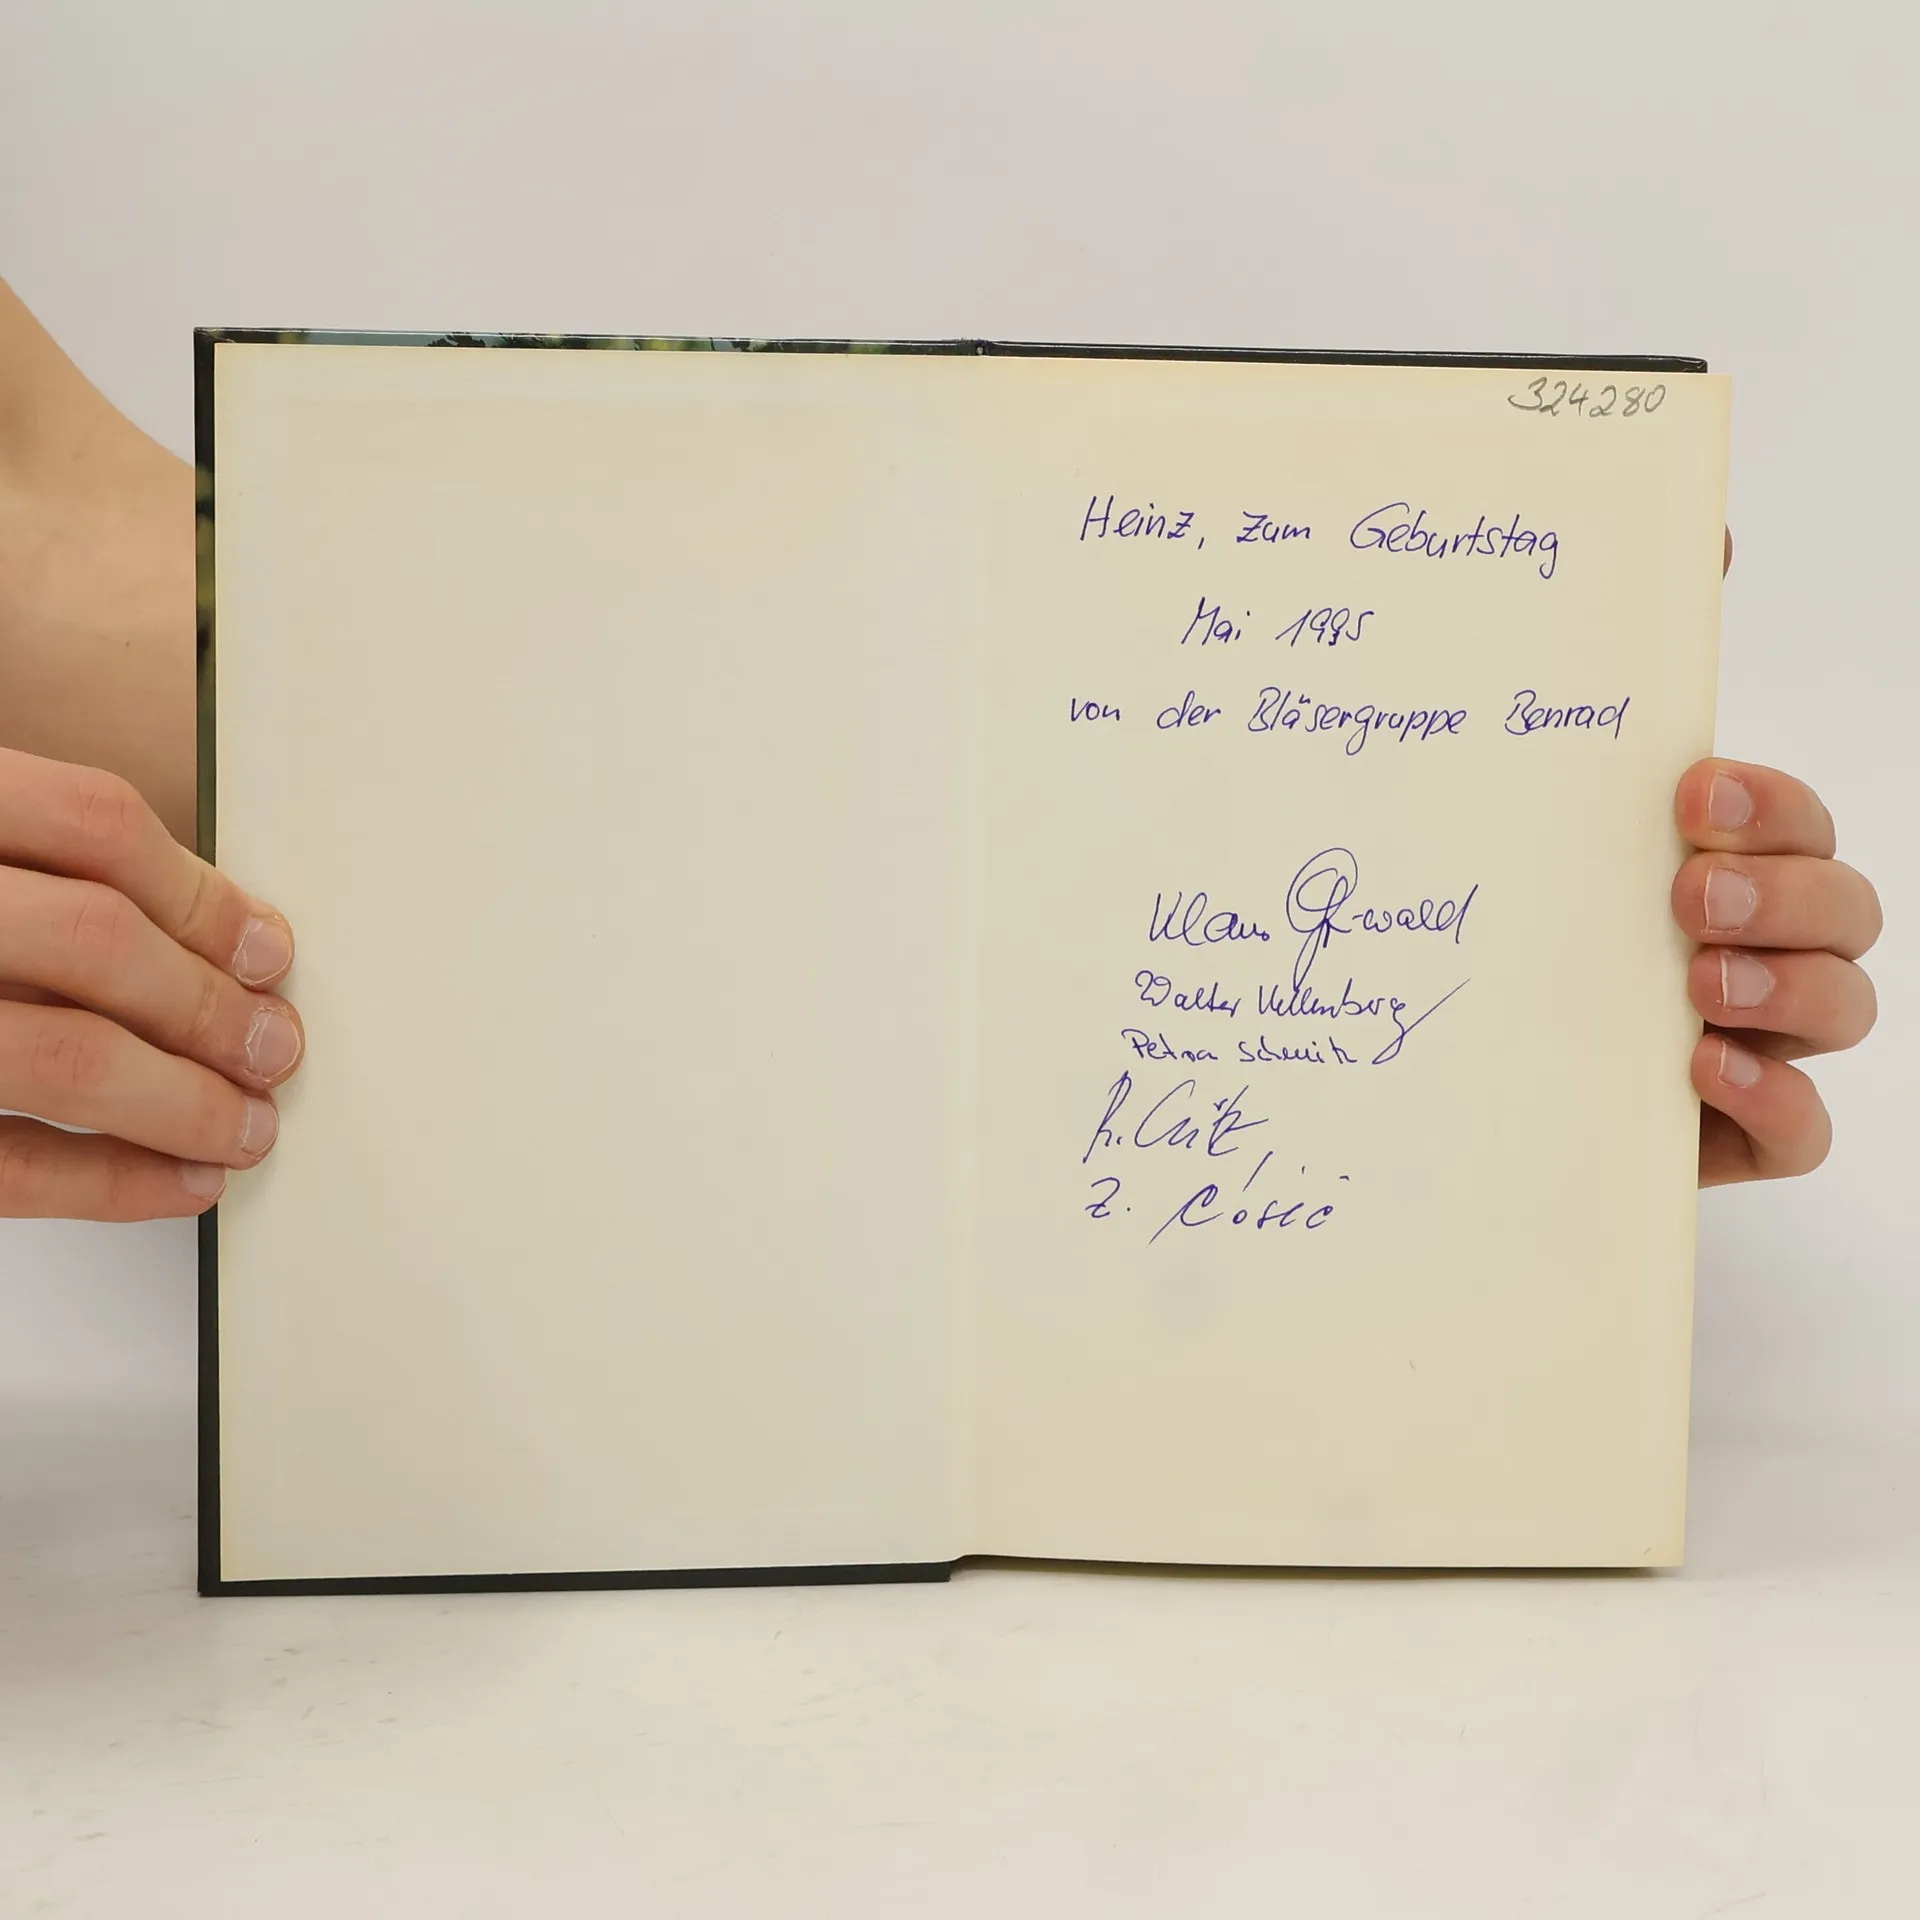 324280
Heinz, zum Geburtstag
Mai 1995
von der Bläsergruppe Benrad
Klaus
Walter
Petra Schmitz
Z. Ćosić